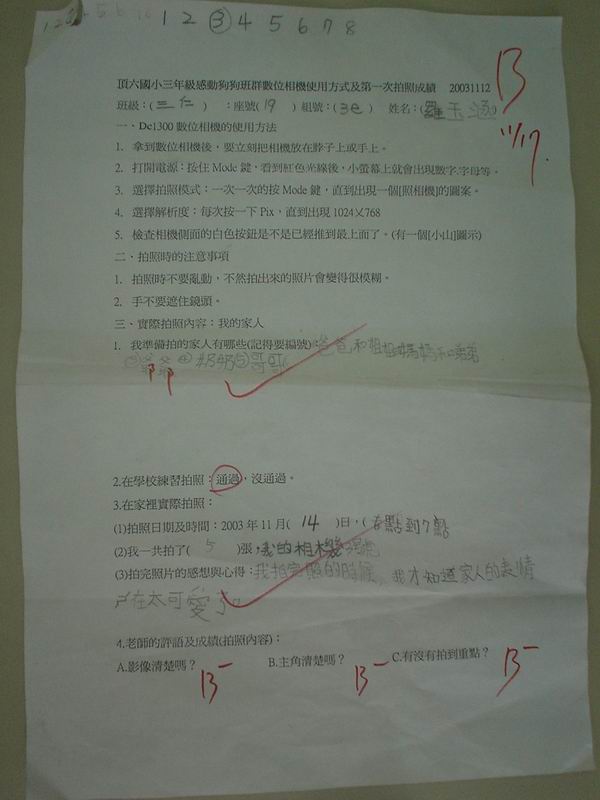 1 2 ③ 4 5 6 7 8
B
11/17.
頂六國小三年級感動狗狗班群數位相機使用方式及第一次拍照成績 20031112
班級：(三仁) ：座號(19) 組號：(3e) 姓名：(羅玉涵)
一、Dc1300 數位相機的使用方法
1. 拿到數位相機後，要立刻把相機放在脖子上或手上。
2. 打開電源：按住 Mode 鍵，看到紅色光線後，小螢幕上就會出現數字.字母等。
3. 選擇拍照模式：一次一次的按 Mode 鍵，直到出現一個[照相機]的圖案。
4. 選擇解析度：每次按一下 Pix，直到出現 1024╳768
5. 檢查相機側面的白色按鈕是不是已經推到最上面了。(有一個[小山]圖示)
二、拍照時的注意事項
1. 拍照時不要亂動，不然拍出來的照片會變得很模糊。
2. 手不要遮住鏡頭。
三、實際拍照內容：我的家人
1. 我準備拍的家人有哪些(記得要編號)：爸爸和姐姐媽媽和弟弟
爺爺④奶奶⑤哥哥
2.在學校練習拍照：通過，沒通過。
3.在家裡實際拍照：
(1)拍照日期及時間：2003 年 11 月( 14 )日，( 點到7點
(2)我一共拍了( 5 )張，我的相機
(3)拍完照片的感想與心得：我拍完照的時候，我才知道家人的表情
在太可愛了。
4.老師的評語及成績(拍照內容)：
A.影像清楚嗎？ B.主角清楚嗎？ C.有沒有拍到重點？
B- B- B-